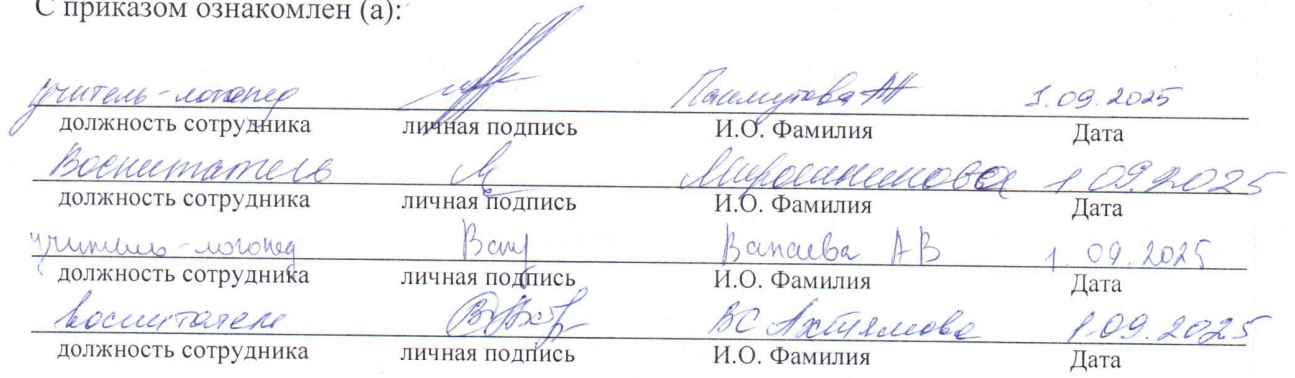 С приказом ознакомлен (а):
учитель-логопед 1.09.2025
должность сотрудника личная подпись И.О. Фамилия Дата
Воспитатель Мирошникова 1 09.2025
должность сотрудника личная подпись И.О. Фамилия Дата
учитель-логопед Вапаева АВ 1. 09. 2025
должность сотрудника личная подпись И.О. Фамилия Дата
воспитатель ВС Ахтямова 1.09.2025
должность сотрудника личная подпись И.О. Фамилия Дата